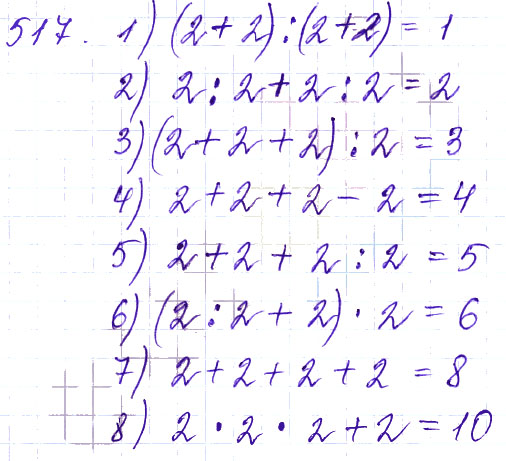 517. 1) (2+2):(2+2)= 1
2) 2:2+2:2=2
3)(2+2+2):2=3
4) 2+2+2-2=4
5) 2+2+2:2=5
6) (2:2+2)·2=6
7) 2+2+2+2=8
8) 2·2·2+2=10